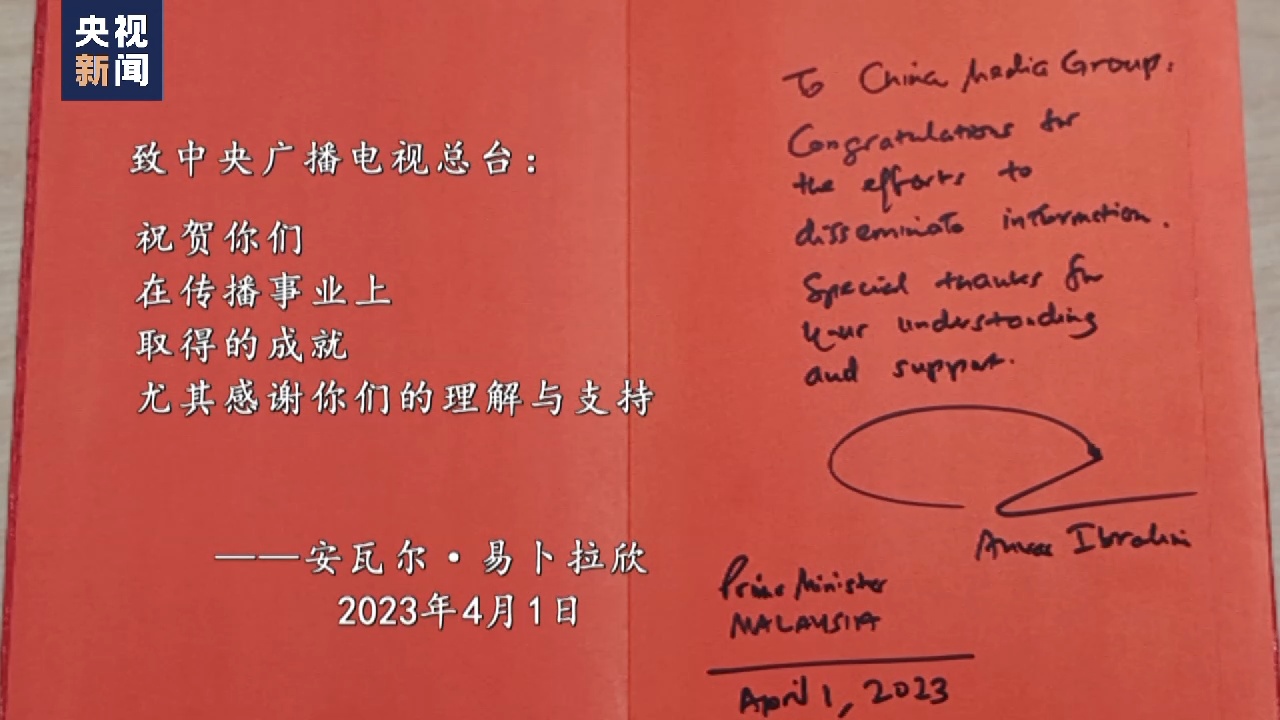 央视
新闻
致中央广播电视总台：
祝贺你们
在传播事业上
取得的成就
尤其感谢你们的理解与支持
——安瓦尔·易卜拉欣
2023年4月1日
To China Media Group.
Congratulations for
the efforts to
disseminate information.
Special thanks for
your understanding
and support.
Anwar Ibrahim
Prime Minister
MALAYSIA
April 1, 2023